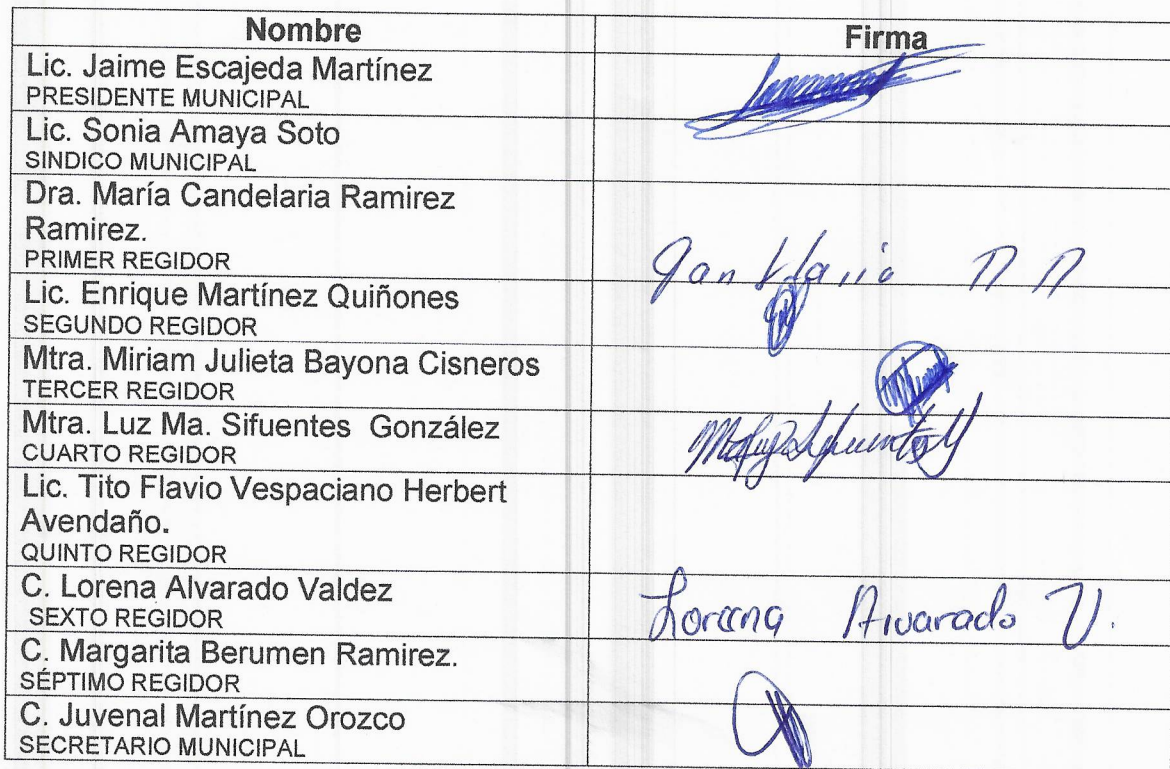 Nombre Firma
Lic. Jaime Escajeda Martínez
PRESIDENTE MUNICIPAL
Lic. Sonia Amaya Soto
SINDICO MUNICIPAL
Dra. María Candelaria Ramirez
Ramirez.
PRIMER REGIDOR
Lic. Enrique Martínez Quiñones
SEGUNDO REGIDOR
Mtra. Miriam Julieta Bayona Cisneros
TERCER REGIDOR
Mtra. Luz Ma. Sifuentes González
CUARTO REGIDOR
Lic. Tito Flavio Vespaciano Herbert
Avendaño.
QUINTO REGIDOR
C. Lorena Alvarado Valdez
SEXTO REGIDOR
Lorena Alvarado V.
C. Margarita Berumen Ramirez.
SÉPTIMO REGIDOR
C. Juvenal Martínez Orozco
SECRETARIO MUNICIPAL